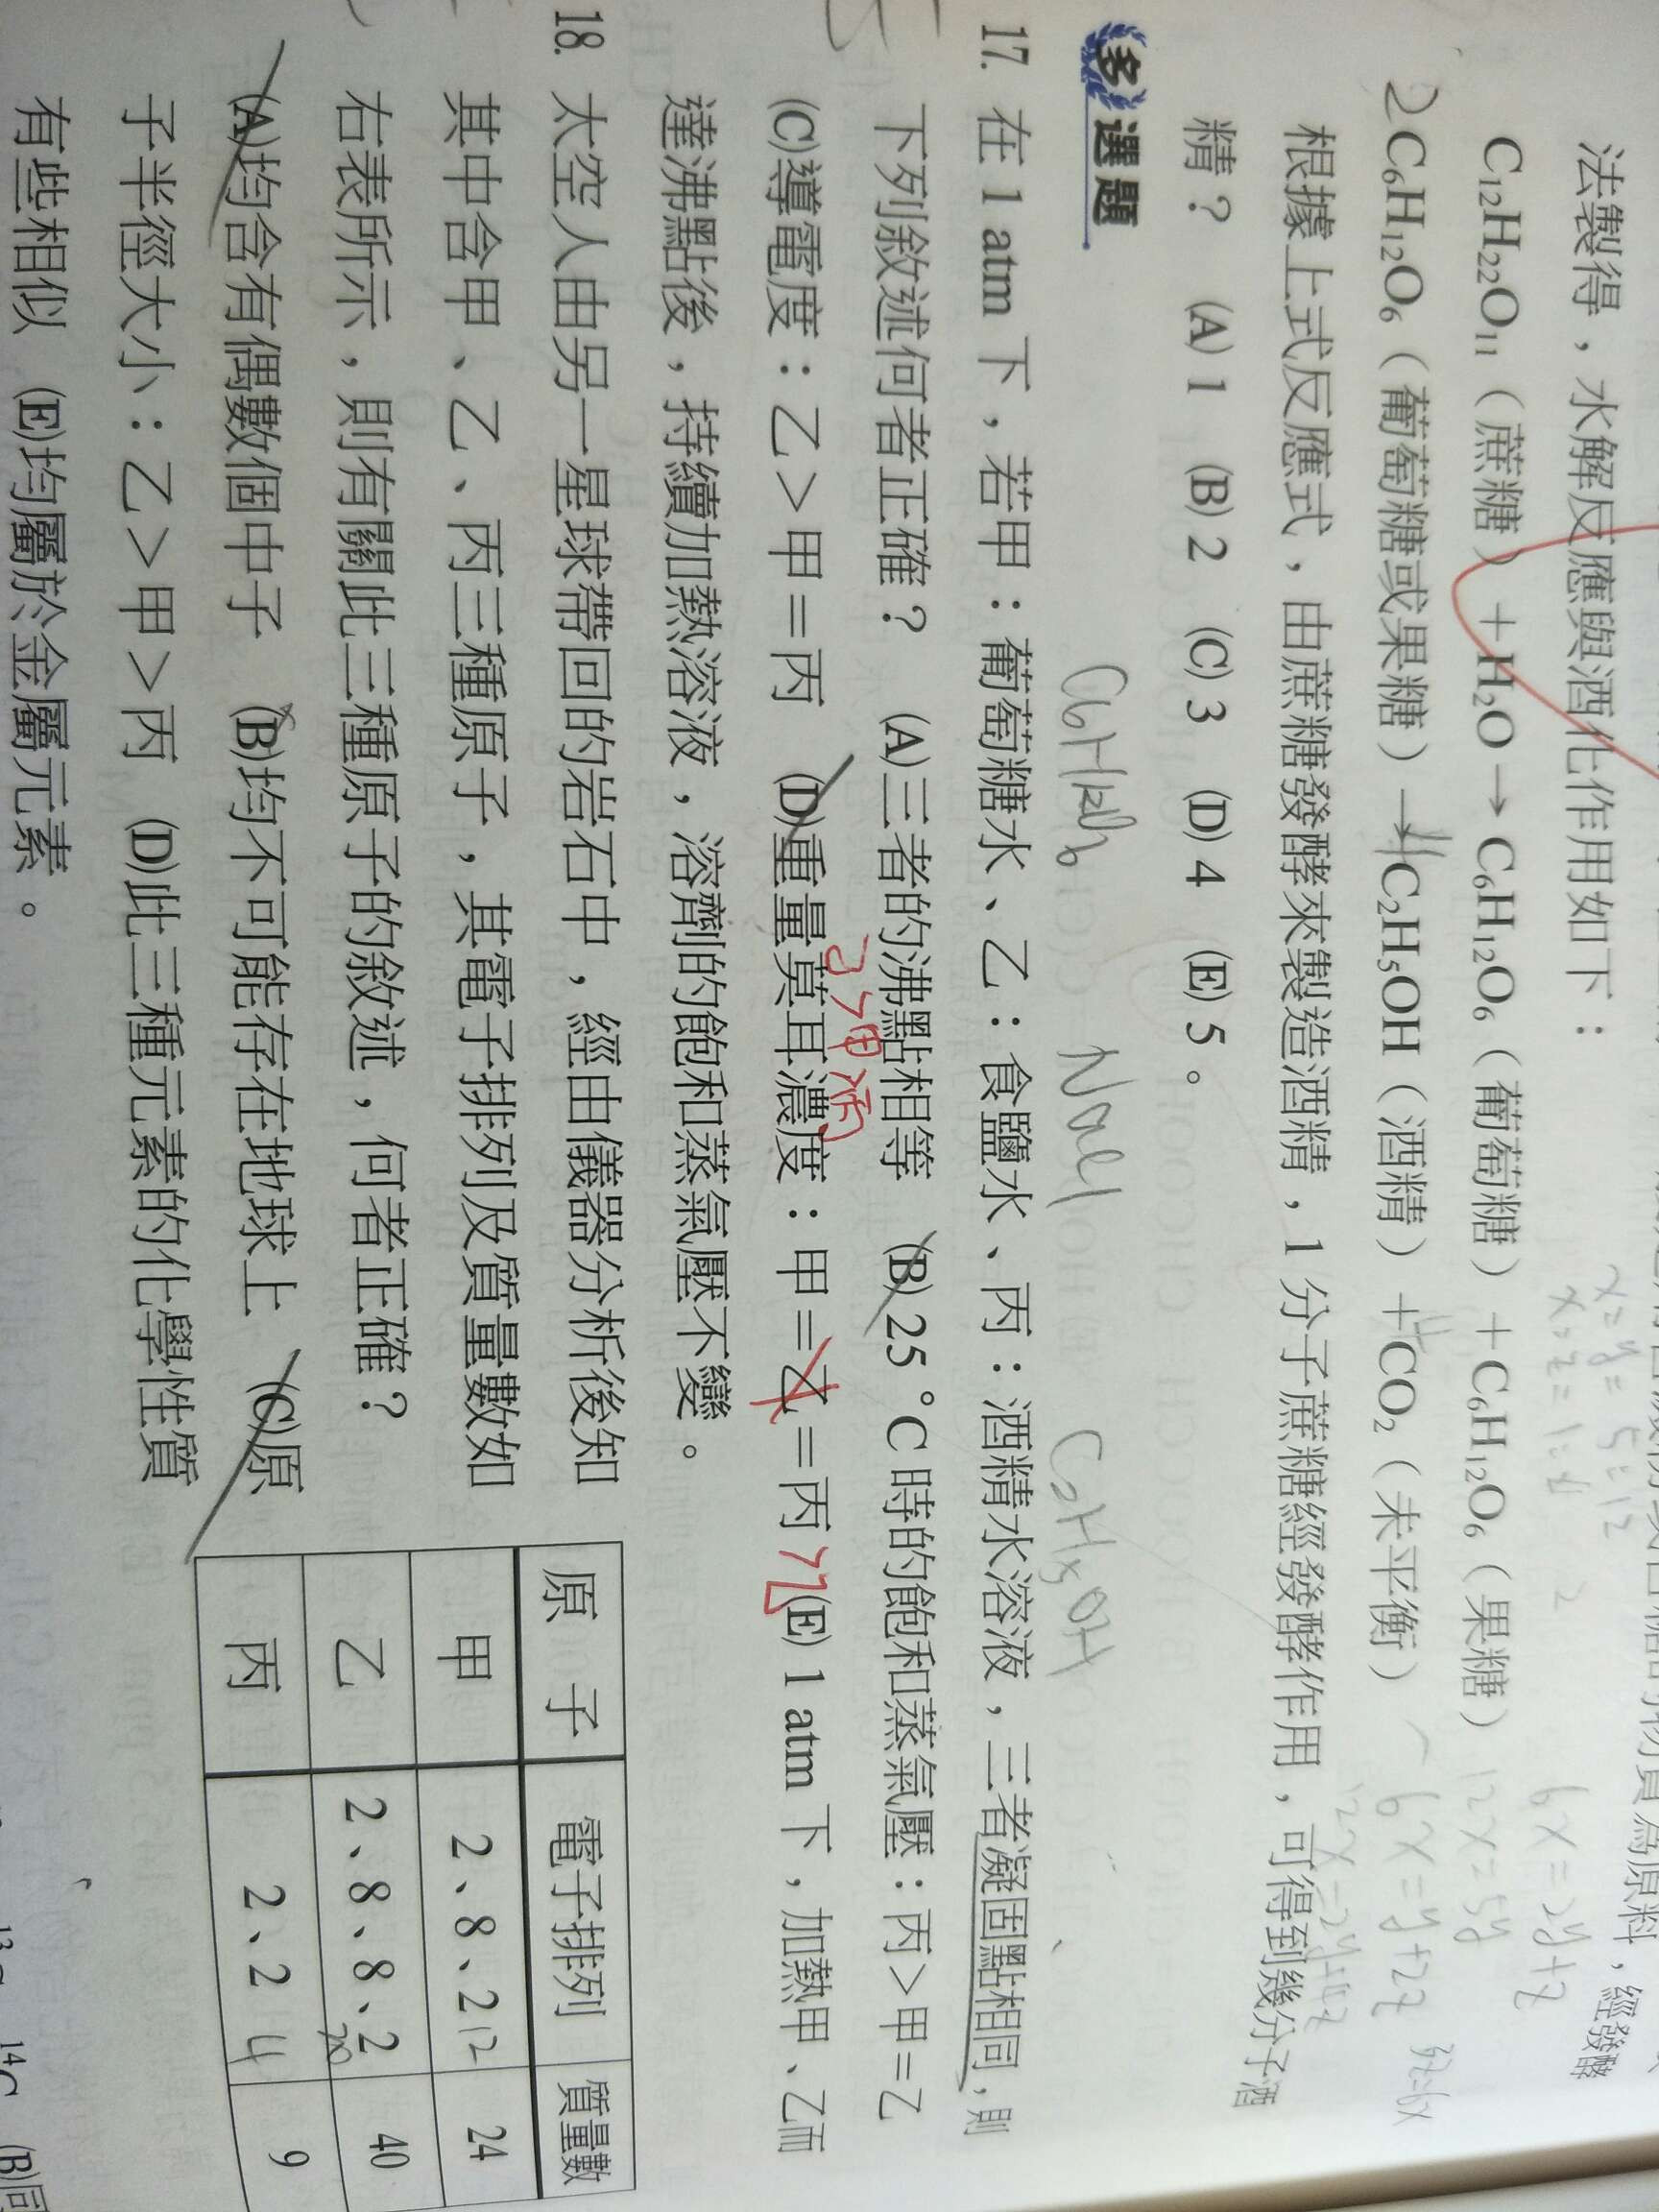 法製得，水解反應與酒化作用如下：
C₁₂H₂₂O₁₁（蔗糖）＋H₂O→C₆H₁₂O₆（葡萄糖）＋C₆H₁₂O₆（果糖）
2 C₆H₁₂O₆（葡萄糖或果糖）→ C₂H₅OH（酒精）＋CO₂（未平衡）
根據上式反應式，由蔗糖發酵來製造酒精，1 分子蔗糖經發酵作用，可得到幾分子酒
精？ (A) 1 (B) 2 (C) 3 (D) 4 (E) 5。
6x=2y+z
12x=5y
6x=y+2z
多選題
NaCl
C₂H₅OH
17. 在 1 atm 下，若甲：葡萄糖水、乙：食鹽水、丙：酒精水溶液，三者凝固點相同，則
下列敘述何者正確？ (A)三者的沸點相等 (B) 25 °C 時的飽和蒸氣壓：丙＞甲＝乙
(C)導電度：乙＞甲＝丙 (D)重量莫耳濃度：甲＝乙＝丙 (E) 1 atm 下，加熱甲、乙而
達沸點後，持續加熱溶液，溶劑的飽和蒸氣壓不變。
18. 太空人由另一星球帶回的岩石中，經由儀器分析後知
其中含甲、乙、丙三種原子，其電子排列及質量數如
右表所示，則有關此三種原子的敘述，何者正確？
(A)均含有偶數個中子 (B)均不可能存在地球上 (C)原
子半徑大小：乙＞甲＞丙 (D)此三種元素的化學性質
有些相似 (E)均屬於金屬元素。
原子 電子排列 質量數
甲 2、8、2 12 24
乙 2、8、8、2 20 40
丙 2、2 4 9